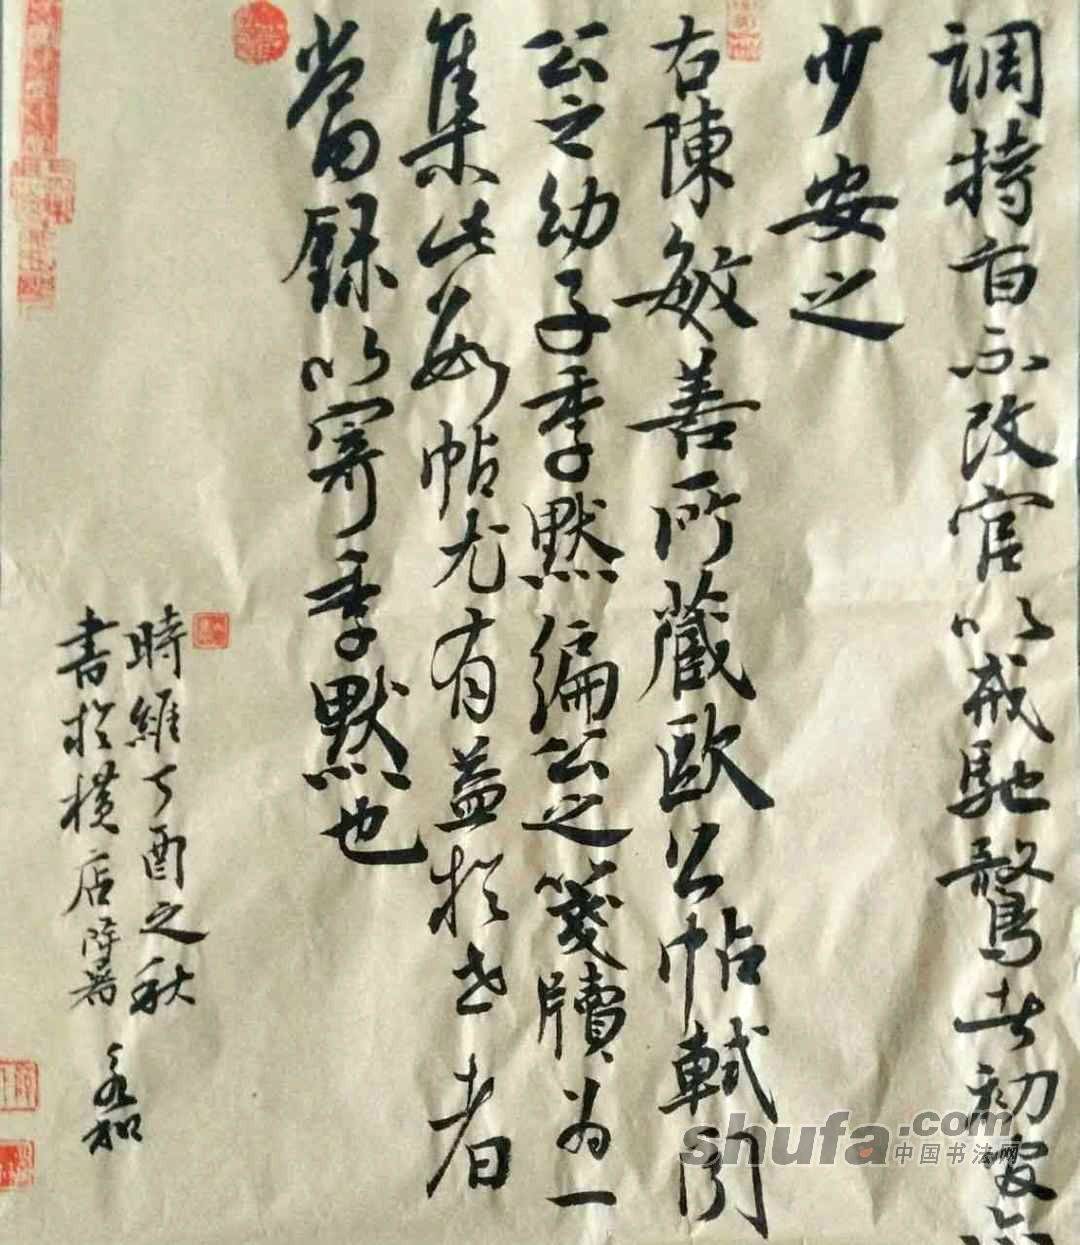 調持不改官以戒馳騖初
少安之
右陳敏善所藏歐公帖軾聞
公之幼子季默編公之箋牘為一
集此數帖尤有益於世者
當錄以寄季默也
時維丁酉之秋
書於橫店 永和
shufa.com
中国书法网